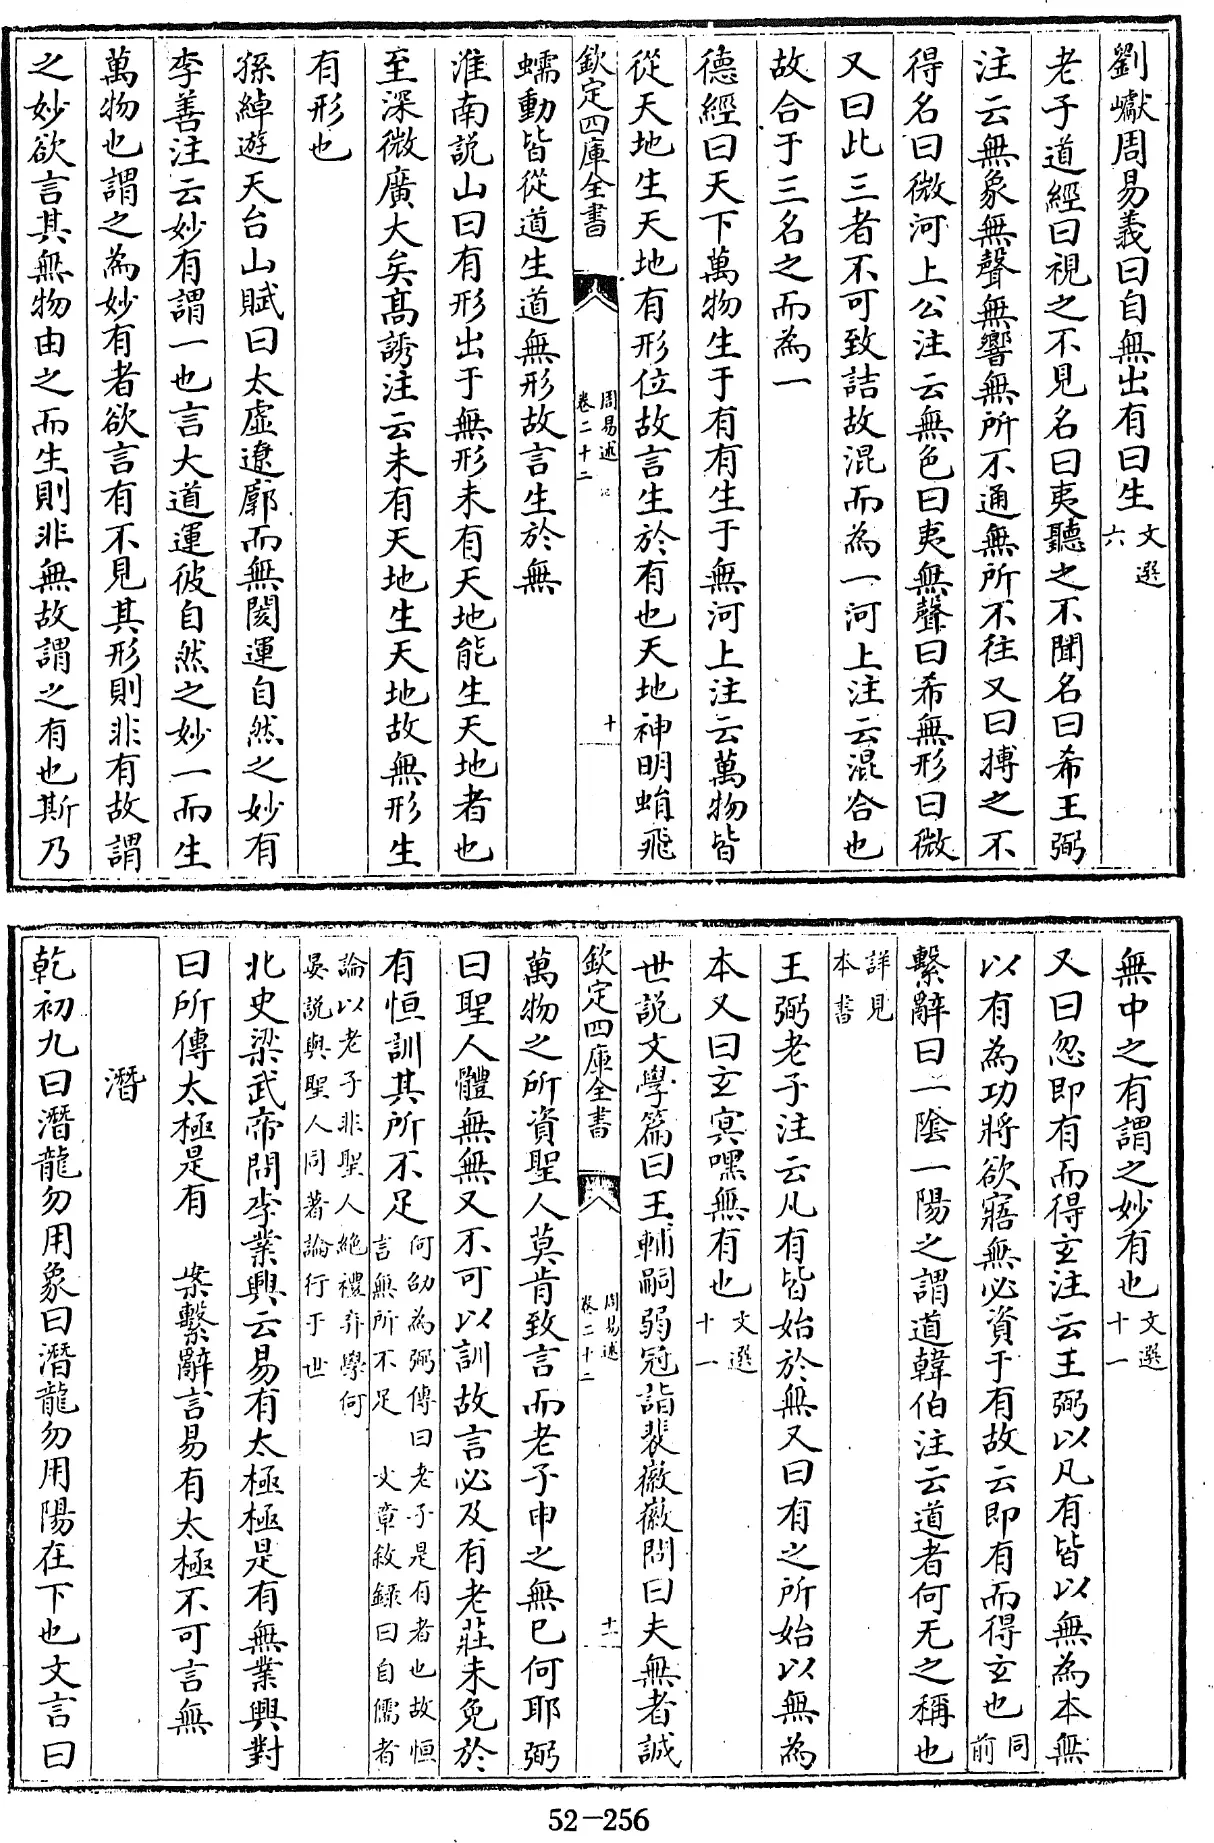 劉巘周易義曰自無出有曰生文選六
老子道經曰視之不見名曰夷聽之不聞名曰希王弼
注云無象無聲無響無所不通無所不往又曰搏之不
得名曰微河上公注云無色曰夷無聲曰希無形曰微
又曰此三者不可致詰故混而為一河上注云混合也
故合于三名之而為一
德經曰天下萬物生于有有生于無河上注云萬物皆
從天地生天地有形位故言生於有也天地神明蜎飛
欽定四庫全書 周易述 卷二十二 十
蠕動皆從道生道無形故言生於無
淮南説山曰有形出于無形未有天地能生天地者也
至深微廣大矣高誘注云未有天地生天地故無形生
有形也
孫綽遊天台山賦曰太虛遼廓而無閡運自然之妙有
李善注云妙有謂一也言大道運彼自然之妙一而生
萬物也謂之為妙有者欲言有不見其形則非有故謂
之妙欲言其無物由之而生則非無故謂之有也斯乃
無中之有謂之妙有也文選十一
又曰忽即有而得玄注云王弼以凡有皆以無為本無
以有為功將欲寤無必資于有故云即有而得玄也同前
繫辭曰一陰一陽之謂道韓伯注云道者何无之稱也
詳見本書
王弼老子注云凡有皆始於無又曰有之所始以無為
本又曰玄冥嘿無有也文選十一
世説文學篇曰王輔嗣弱冠詣裴徽徽問曰夫無者誠
欽定四庫全書 周易述 卷二十二 十一
萬物之所資聖人莫肯致言而老子申之無已何耶弼
曰聖人體無無又不可以訓故言必及有老莊未免於
有恒訓其所不足何劭為弼傳曰老子是有者也故恒言無所不足 文章敘錄曰自儒者
論以老子非聖人絶禮弃學何晏説與聖人同著論行于世
北史梁武帝問李業興云易有太極極是有無業興對
曰所傳太極是有 案繫辭言易有太極不可言無
潛
乾初九曰潛龍勿用象曰潛龍勿用陽在下也文言曰
52-256